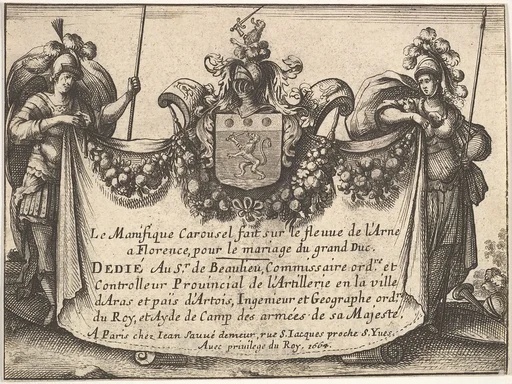 Le Manifique Carousel fait sur le fleuue de l'Arne
a Florence, pour le mariage du grand Duc.
DEDIE Au Sr. de Beaulieu, Commissaire ordre. et
Controlleur Provincial de l'Artillerie en la ville
d'Aras et pais d'Artois, Ingenieur et Geographe, ordre.
du Roy, et Ayde de Camp des armées de sa Majesté.
A Paris chez Iean Sauué demeur, rue S. Iacques proche S. Yues.
Avec privilege du Roy. 1664.